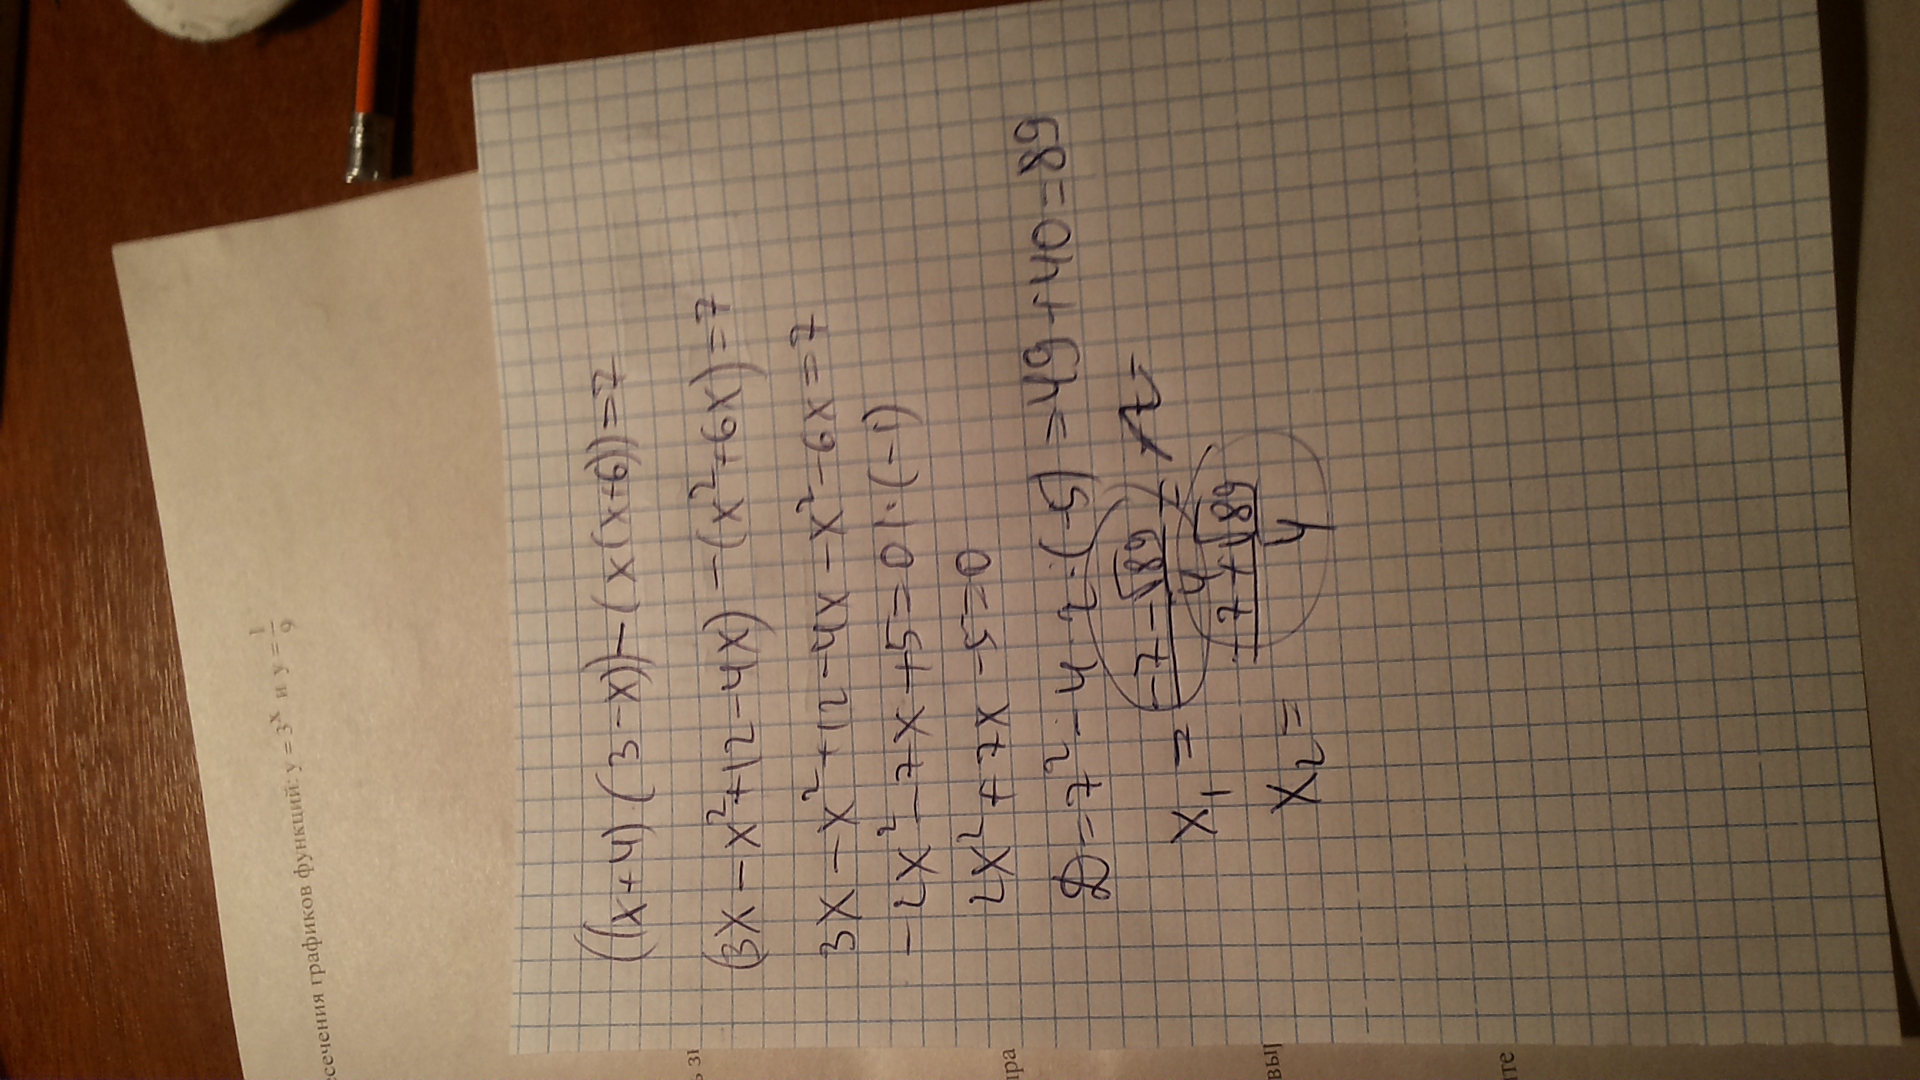 есечения графиков функций: y = 3^x и y = 1/9
((x+4)·(3-x))-(x(x+6))=7
(3x-x²+12-4x)-(x²+6x)=7
3x-x²+12-4x-x²-6x=7
-2x²-7x+5=0 |·(-1)
2x²+7x-5=0
D=7²-4·2·(-5)=49+40=89
x₁= (-7-√89)/4 =
x₂= (-7+√89)/4
ь зн
пра
выр
те